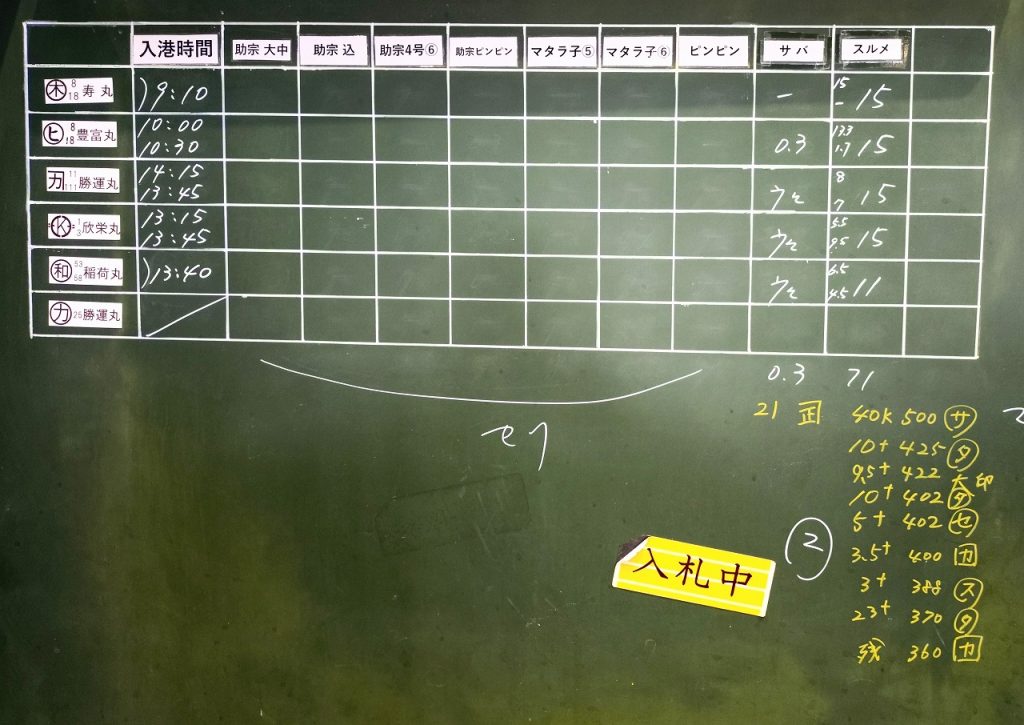 入港時間 助宗 大中 助宗 込 助宗4号⑥ 助宗ピンピン マタラ子⑤ マタラ子⑥ ピンピン サバ スルメ
㊍ 8 18 寿丸 )9:10 - 15 - 15
ヒ 8 18 豊富丸 10:00 10:30 0.3 13.3 1.7 15
カ 11 111 勝運丸 14:15 13:45 8 7 15
K 1 3 欣栄丸 13:15 13:45 5.5 9.5 15
和 53 58 稲荷丸 )13:40 6.5 4.5 11
カ 25 勝運丸
0.3 71
セリ
21 40K 500 サ
10+ 425 タ
9.5+ 422
10+ 402 タ
5+ 402 セ
② 3.5+ 400 カ
3+ 388 ス
23+ 370 タ
残 360 カ
入札中